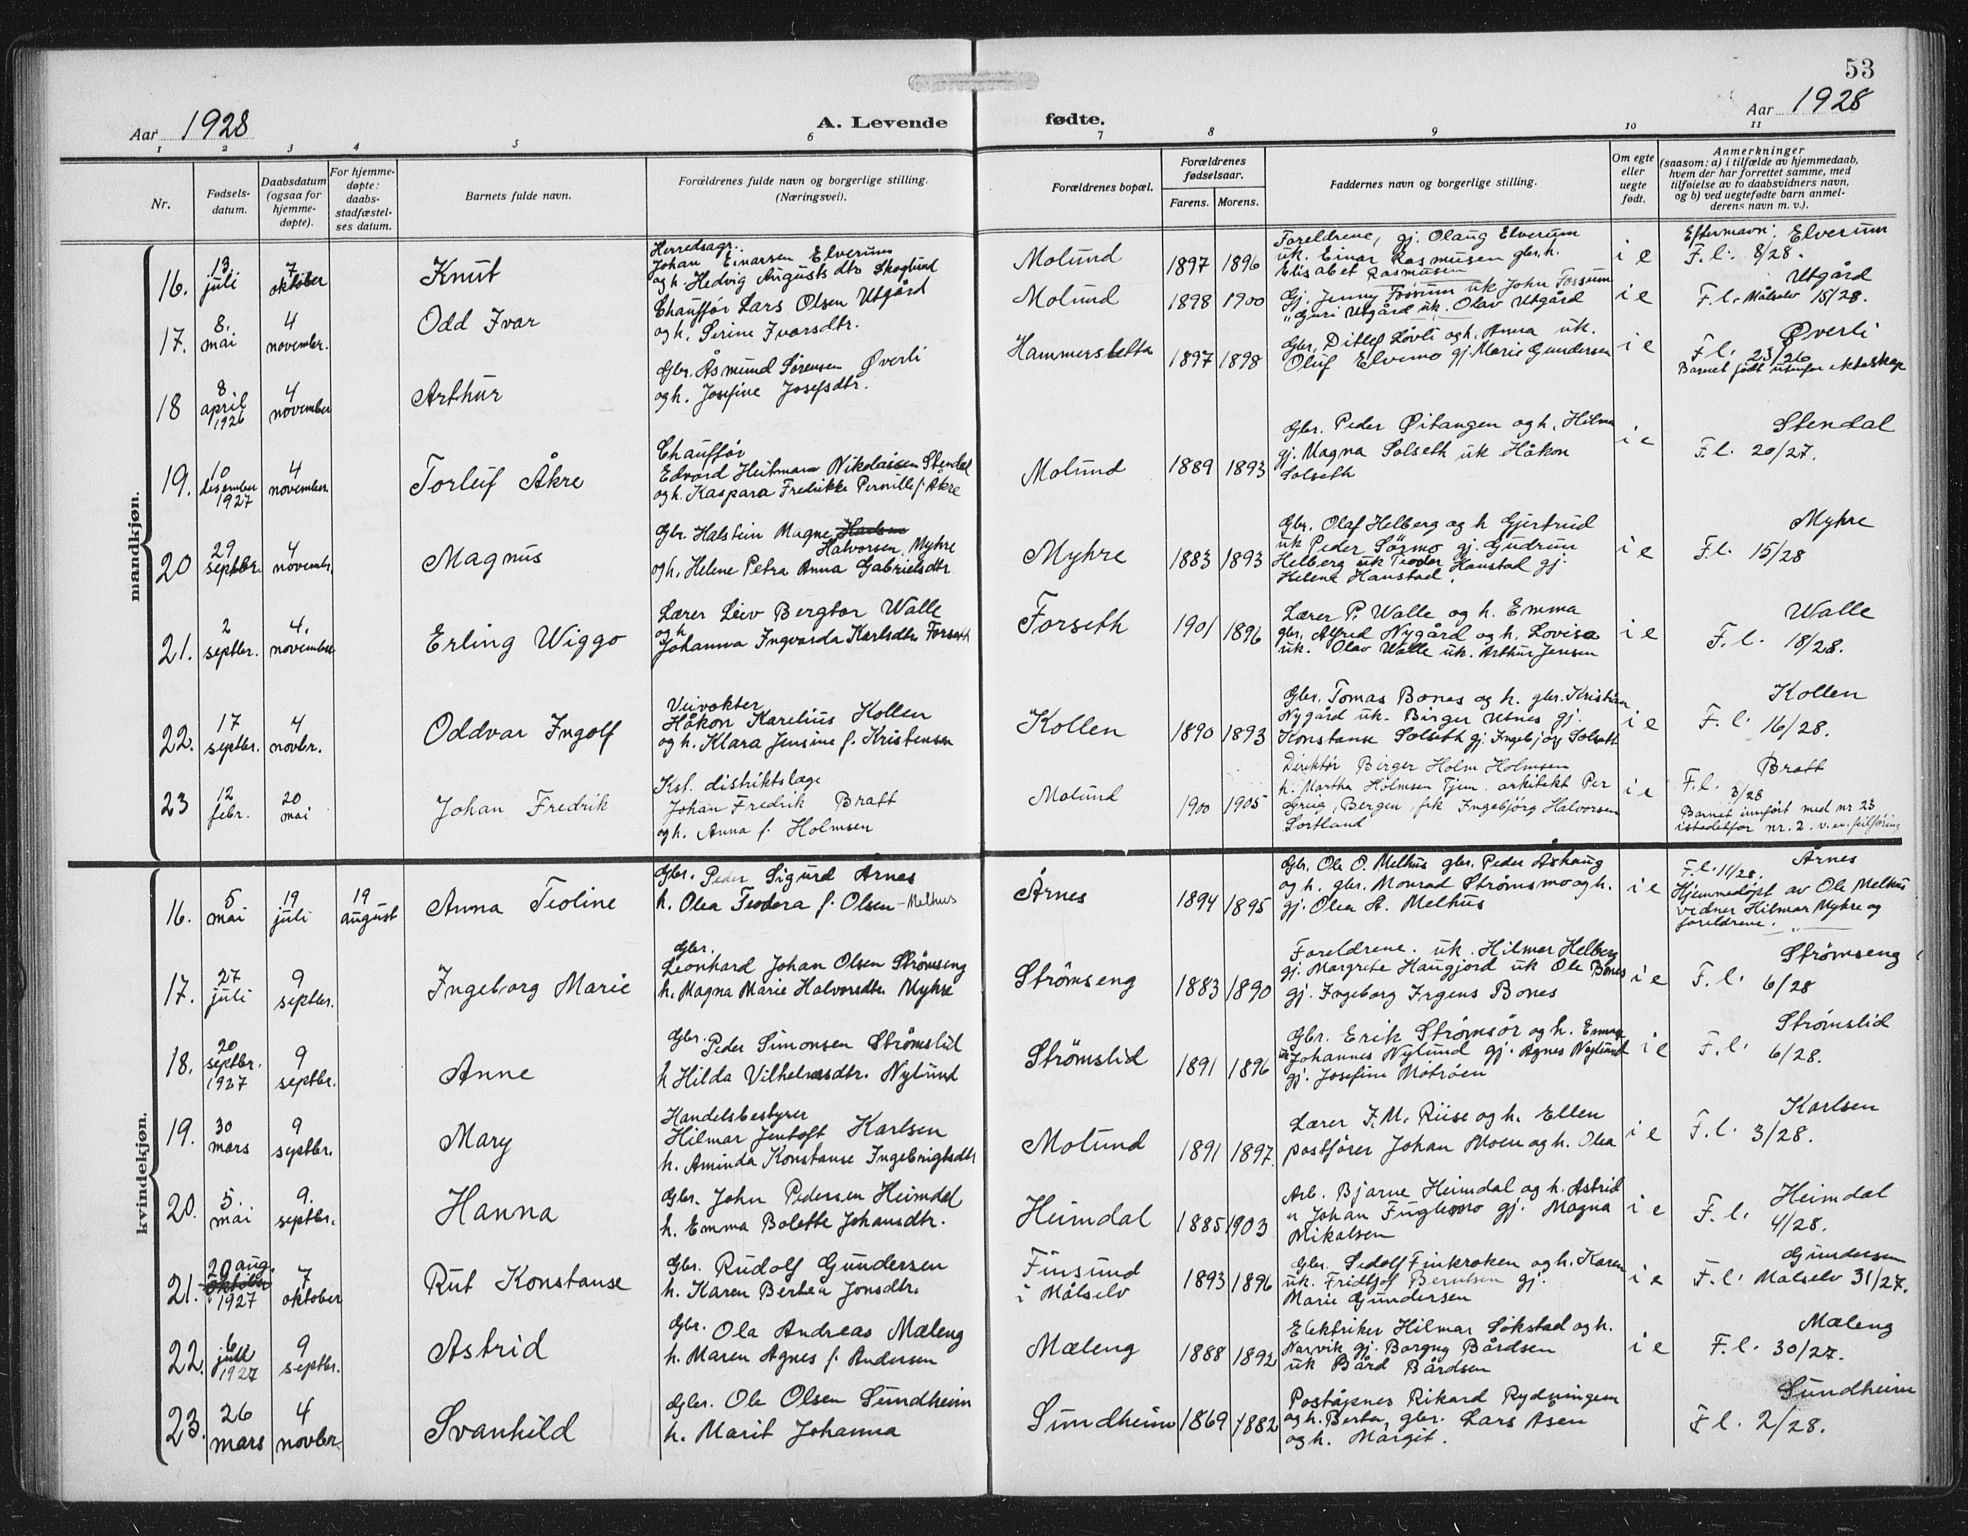 53
Aar 1928
A. Levende
fødte.
Aar 1928
1 2 3 4 5 6 7 8 9 10 11
Nr.
Fødsels-
datum.
Daabsdatum
(ogsaa for
hjemme-
døpte).
For hjemme-
døpte:
daabs-
stadfæstel-
ses datum.
Barnets fulde navn.
Forældrenes fulde navn og borgerlige stilling.
(Næringsvei).
Forældrenes bopæl.
Forældrenes
fødselsaar.
Farens. Morens.
Faddernes navn og borgerlige stilling.
Om egte
eller
uegte
født.
Anmerkninger
(saasom: a) i tilfælde av hjemmedaab,
hvem der har forrettet samme, med
tilføielse av to daabsvidners navn,
og b) ved uegtefødte barn anmel-
derens navn m. v.).
mandkjøn.
16.
13
juli
7
oktober
Knut
Herredsagr.
Johan Einarsen Elverum
og h. Hedvig Augustsdtr Skoglund
Molund
1897 1896
Foreldrene, gj. Olaug Elverum
uk. Einar Rasmusen gbr. h.
Elisabet Rasmusen
i e
Efternavn: Elverum
F. l. 8/28.
17.
8.
mai
4
november.
Odd Ivar
Chauffør Lars Olsen Utgård
og h. Serine Ivarsdtr.
Molund
1898 1900
Gj. Jenny Fossum uk John Fossum
" Guri Utgård uk. Olav Utgård
i e
Utgård
F. l. Målselv 15/28.
18
8
april
1926
4
november
Arthur
Gbr. Åsmund Sørensen Øverli
og h. Josefine Josefsdtr.
Hammersletta
1897 1898
Gbr. Ditlef Løvli og h. Anna uk.
Oluf Elvemo gj. Marie Gundersen
i e
Øverli
F. l. 23/26
Barnet født utenfor ekteskap
19.
10
desember
1927
4
november.
Torleif Åkre
Chauffør
Edvard Heitman Nikolaisen Stendal
og h. Kaspara Fredrikke Pernille f. Åkre
Molund
1889 1893
Gbr. Peder Øitangen og h. Hilma
gj. Magna Solseth uk Håkon
Solseth
i e
Stendal
F. l. 20/27.
20
29
septbr.
4
novembr.
Magnus
Gbr. Halstein Magne
Halvorsen Myhre
og h. Helene Petra Anna Gabrielsdtr
Myhre
1883 1893
Gbr. Olaf Helberg og h Gjertrud
uk Peder Sørmo gj. Gudrun
Helberg uk Teodor Hanstad gj
Helene Hanstad.
i e
Myhre
F. l. 15/28
21.
2
septbr.
4.
november
Erling Wiggo
Lærer Leiv Bergtor Walle
og h
Johanna Ingvarda Karlsdtr Forseth
Forseth
1901 1896
Lærer P. Walle og h. Emma
gbr. Alfred Nygård og h. Lovisa
uk. Olav Walle uk. Arthur Jensen
i e
Walle
F. l. 18/28.
22.
17
septbr.
4
novbr.
Oddvar Ingolf
Veivokter
Håkon Karelius Kollen
og h. Klara Jensine f. Kristensen
Kollen
1890 1893
Gbr. Tomas Bones og h. gbr. Kristian
Nygård uk. Birger Utnes gj.
Konstanse Solseth gj. Ingebjørg Solseth
i e
Kollen
F. l. 16/28.
23
12
febr.
20
mai
Johan Fredrik
Kst. distriktslæge
Johan Fredrik Bratt
og h. Anna f. Holmsen
Molund
1900 1905
Direktør Birger Holm Holmsen
h. Martha Holmsen Tjøm. arkitekt Per
Grieg, Bergen, frk Ingebjørg Halvorsen
Sortland
i e
Bratt
F. l. 3/28
Barnet innført med nr 23
istedetfor nr. 2. v. en feilføring
kvindekjøn.
16.
5
mai
19
juli
19
august
Anna Teoline
Gbr. Peder Sigurd Årnes
h. Olea Teodora f. Olsen - Melhus
Årnes
1894 1895
Gbr. Ole O. Melhus gbr. Peder Åshaug
og h. gbr. Monrad Strømsmo og h.
gj. Olea A. Melhus
i e
Årnes
F. l. 11/28.
Hjemmedøpt av Ole Melhus
vidner Hilmar Myhre og
foreldrene.
17.
27
juli
9
septbr.
Ingeborg Marie
Gbr.
Leonhard Johan Olsen Strømseng
h. Magna Marie Halvorsdtr. Myhre
Strømseng
1883 1890
Foreldrene. uk. Hilmar Helberg
gj. Margrete Haugjord uk Ole Bones
gj. Ingeborg Irgens Bones
i e
Strømseng
F. l. 6/28
18.
20
septbr.
1927
9
septbr.
Anne
Gbr. Peder Simonsen Strømslid
h Hilda Vilhelmsdtr. Nylund
Strømslid
1891 1896
Gbr. Erik Strømsør og h. Emma
uk Johannes Nylund gj. Agnes Nylund
gj. Josefine Motrøen
i e
Strømslid
F. l. 6/28.
19.
30
mars
9
septbr.
Mary
Handelsbestyrer
Hilmar Jentoft Karlsen
h. Aminda Konstanse Ingebrigtsdtr
Molund
1891 1897.
Lærer J. M. Riise og h. Ellen
postfører Johan Moen og h. Olea
i e
Karlsen
F. l. 3/28.
20.
5.
mai
9.
septbr.
Hanna
Gbr. John Pedersen Heimdal
h. Emma Bolette Johansdtr.
Heimdal
1885 1903
Arb. Bjarne Heimdal og h. Astrid
" Johan Fuglemo gj. Magna
Mikalsen
i e
Heimdal
F. l. 4/28.
21.
20 aug.
oktober
1927
7
oktober
Rut Konstanse
Gbr. Rudolf Gundersen
h. Karen Bertea Jonsdtr.
Finsund
i Målselv
1893 1896
Gbr. Sedolf Finkroken og h. Karen
uk. Fridtjof Berntsen gj.
Marie Gundersen
i e
Gundersen
F. l. Målselv 31/27.
22.
6
juli
1927
9
septbr.
Astrid
Gbr. Ola Andreas Mæleng
h. Maren Agnes f. Andersen
Mæleng
1888 1892
Elektriker Hilmar Sökstad og h.
Narvik gj. Borgny Bårdsen
uk Bård Bårdsen
i e
Mæleng
F. l. 30/27.
23.
26
mars
4
novbr.
Svanhild
Gbr. Ole Olsen Sundheim
h. Marit Johanna
Sundheim
1869 1882
Poståpner Rikard Rydningen
og h. Berta, gbr. Lars Åsen
og h. Margit.
Sundheim
F. l. 2/28.